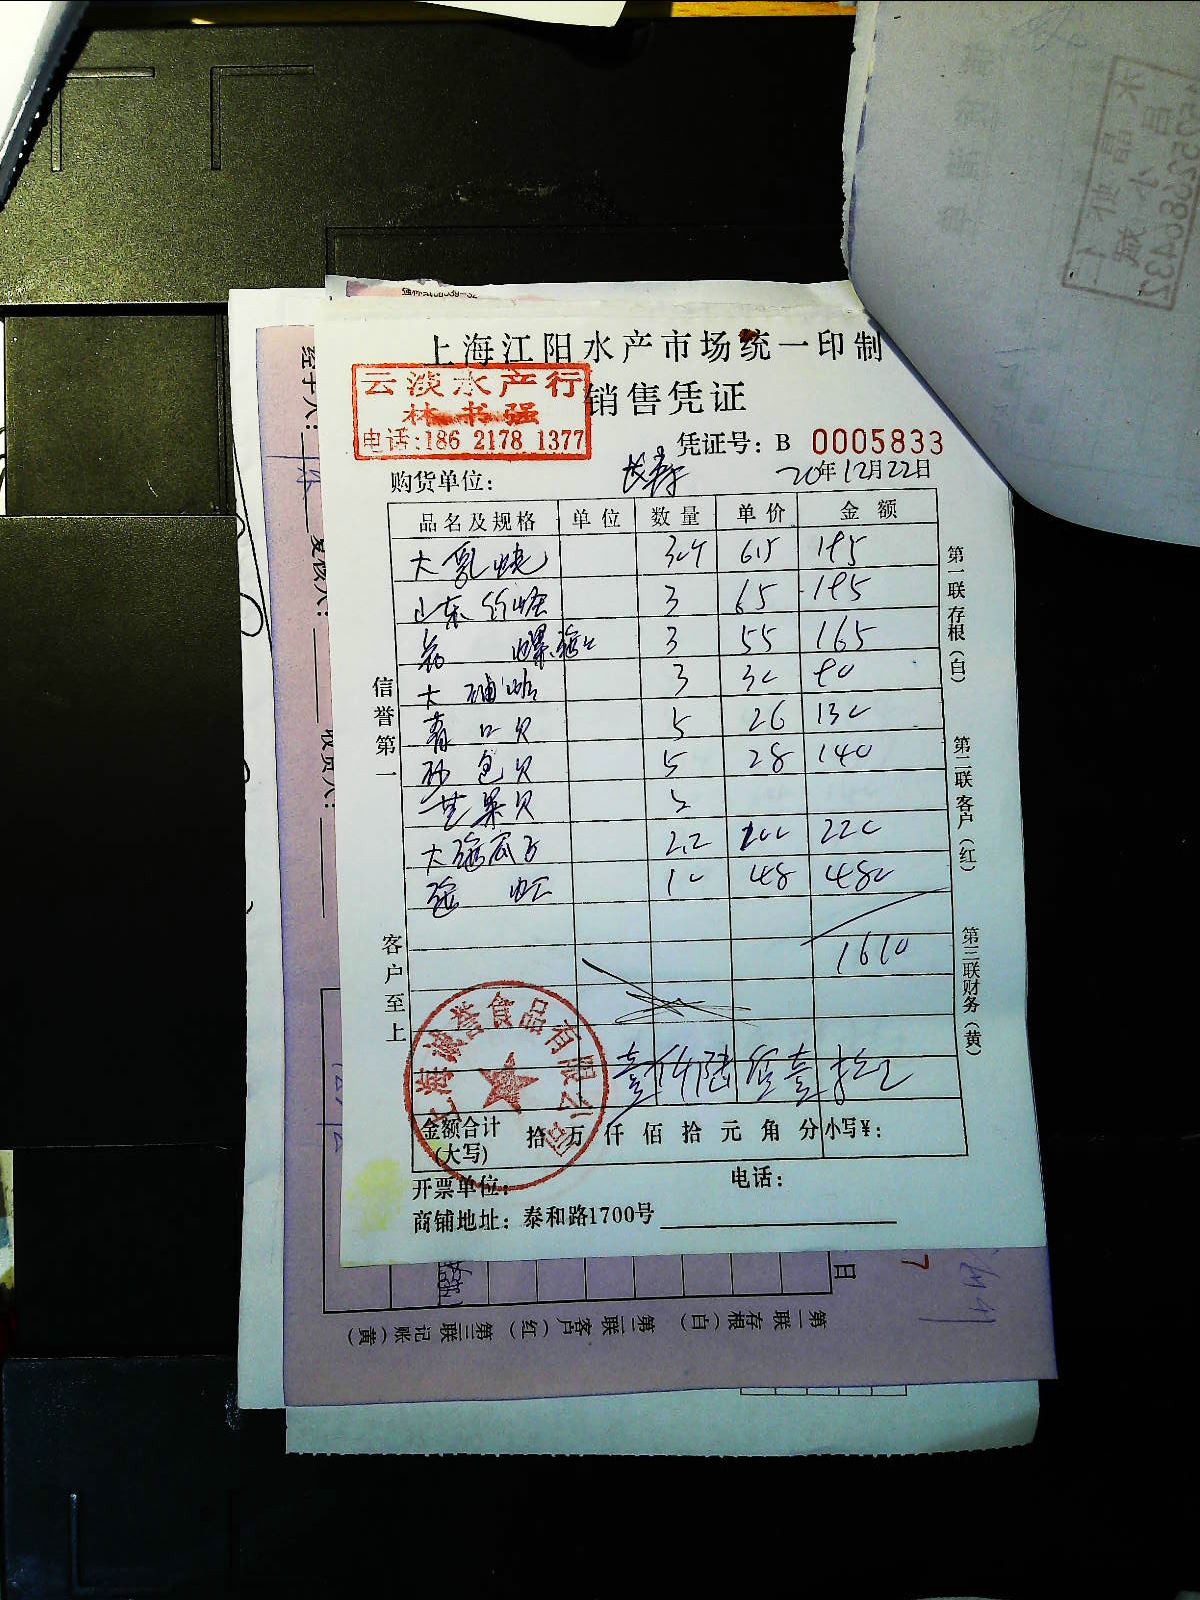 上海江阳水产市场统一印制
云淡水产行
林书强
电话:186 2178 1377
销售凭证
凭证号: B 0005833
购货单位: 长寿 20年12月22日
品名及规格 单位 数量 单价 金额
大 65 195
山东 3 65 195
螺 3 55 165
大 3 30 90
青口贝 5 26 130
砂包贝 5 28 140
芒果贝 5
大海瓜子 2.2 100 220
海虹 10 48 480
1610
壹仟陆佰壹拾元
金额合计 (大写) 拾 万 仟 佰 拾 元 角 分 小写¥:
开票单位: 电话:
商铺地址: 泰和路1700号
信誉第一 客户至上
第一联存根(白) 第二联客户(红) 第三联财务(黄)
上海诚誉食品有限公司
经手人:
复核人:
收货人:
日
7
第一联 存根(白) 第二联 客户(红) 第三联 记账(黄)